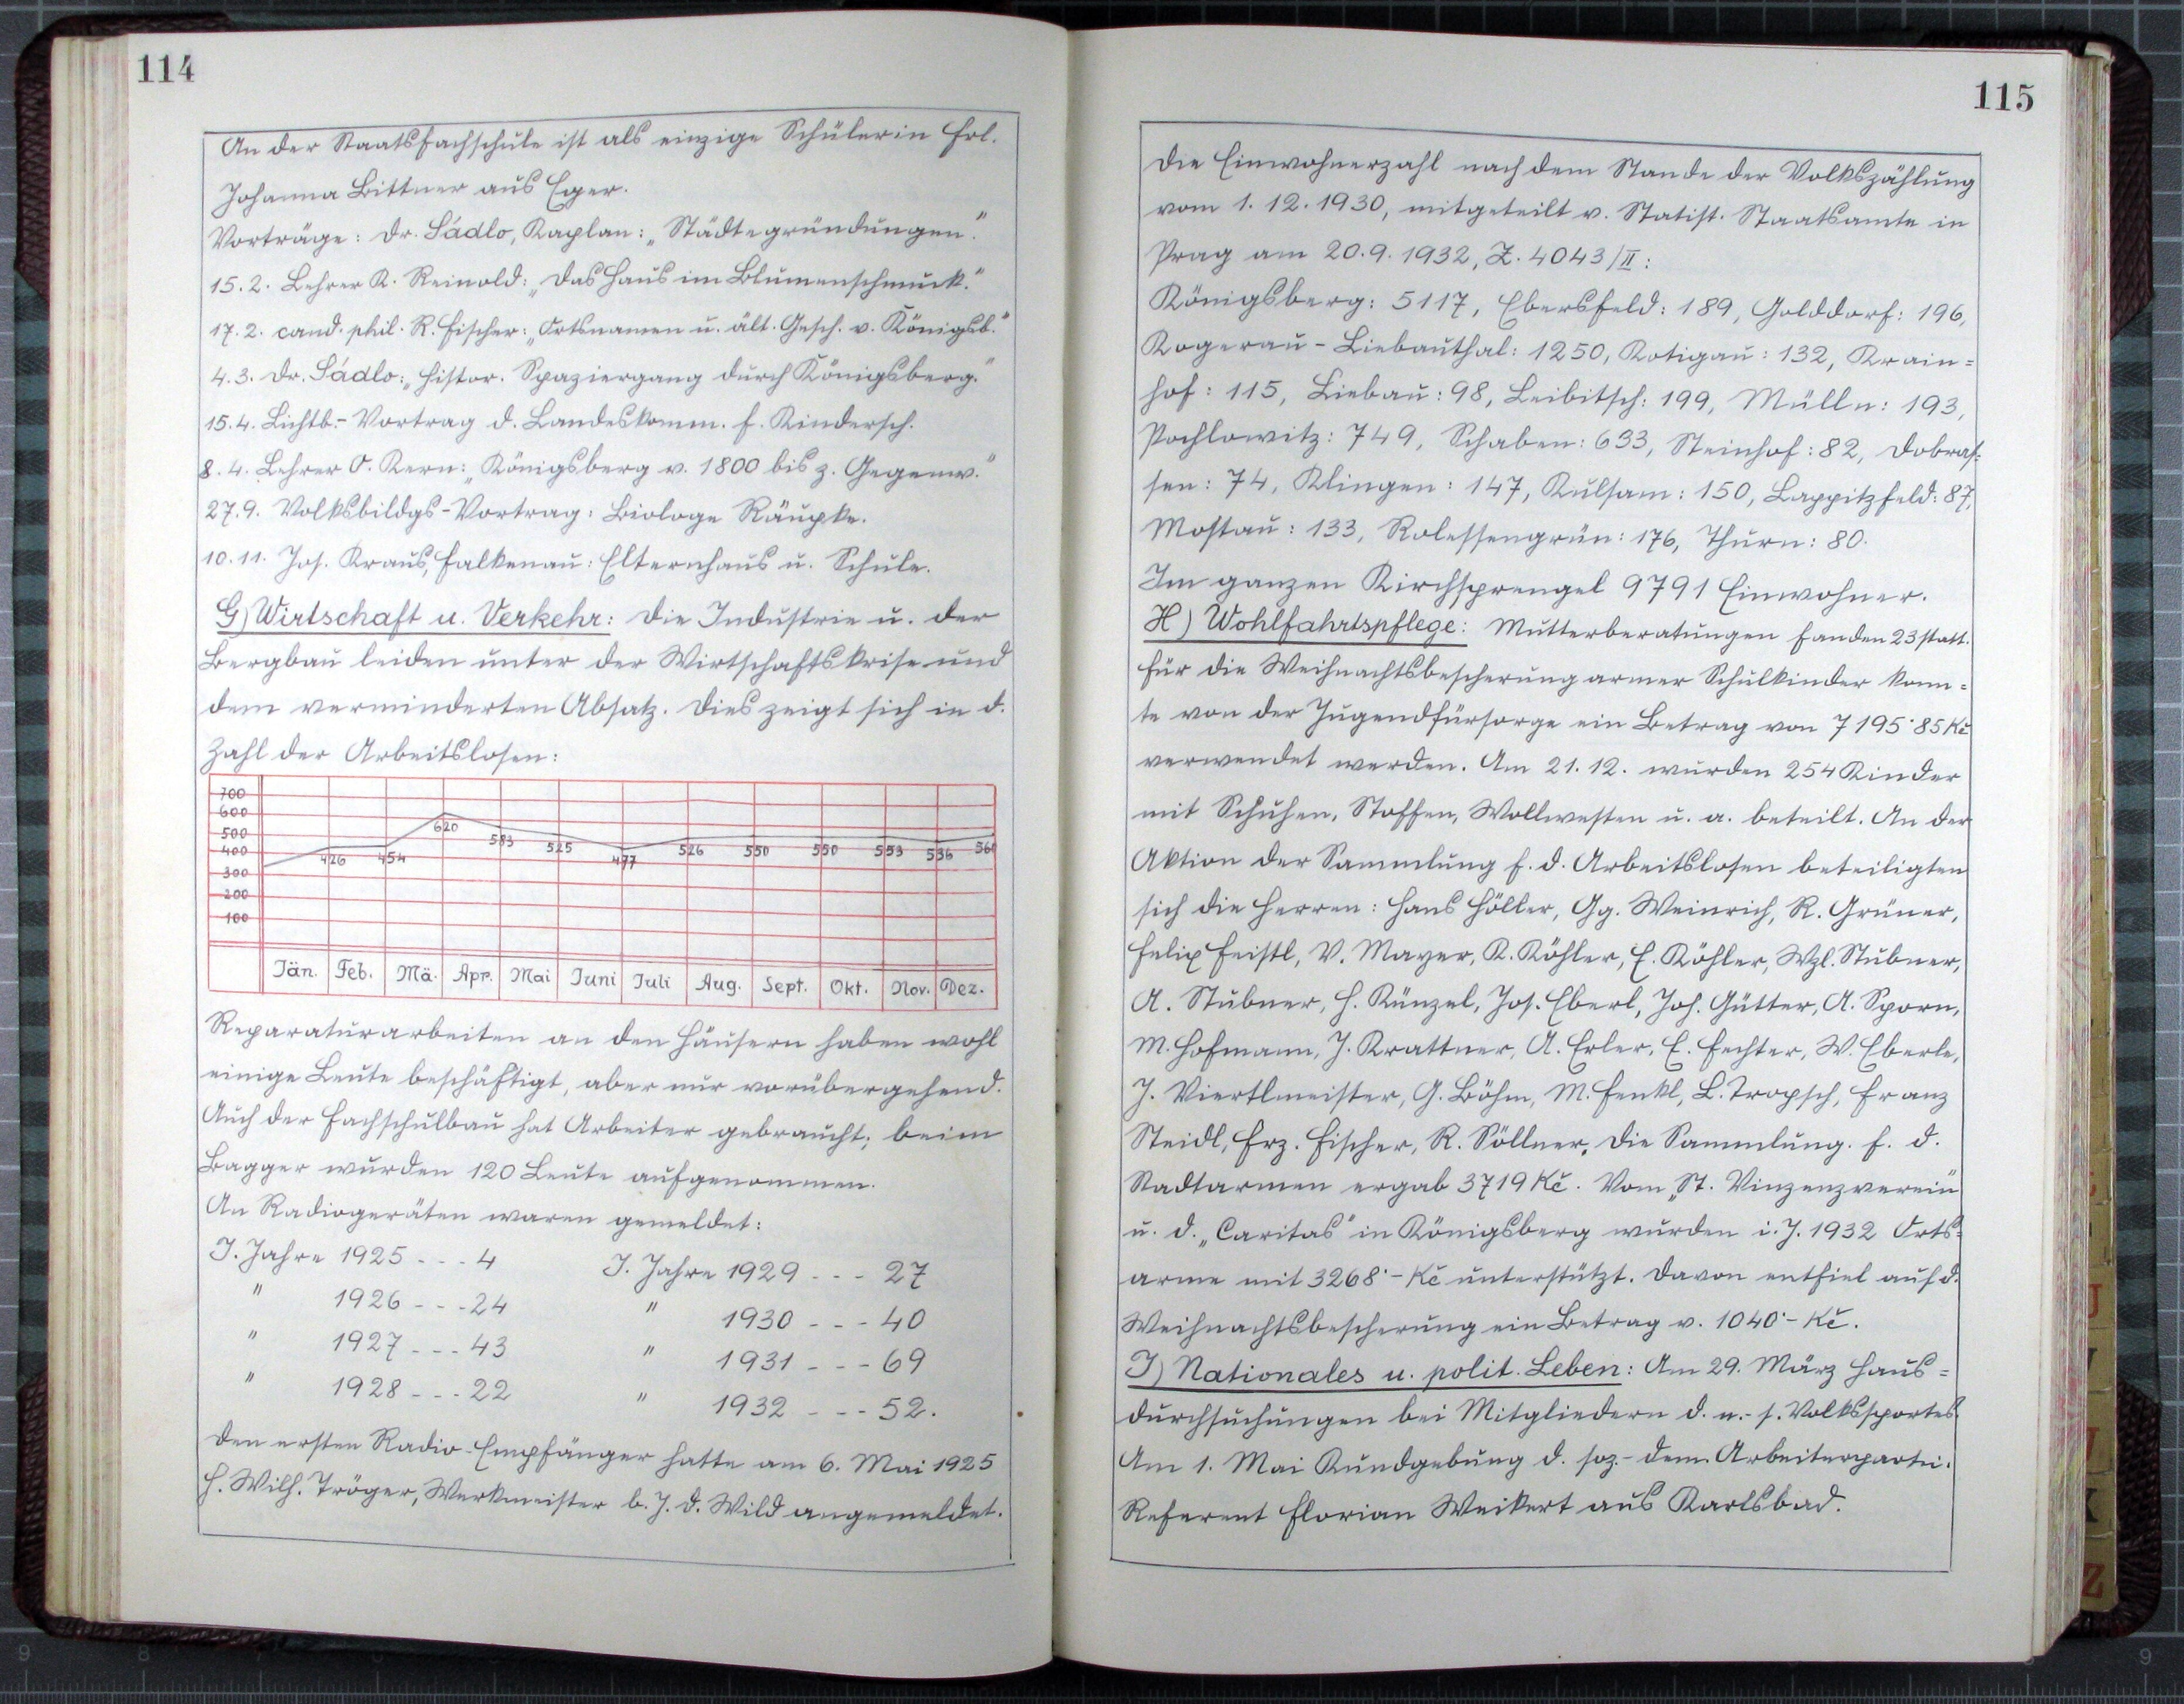 114
An der Staatsfachschule ist als einzige Schülerin Frl.
Johanna Bittner aus Eger.
Vorträge: Dr. Sádlo, Kaplan: „Städtegründungen."
15.2. Lehrer K. Reinold: „Das Haus im Blumenschmuck."
17.2. cand. phil. R. Fischer: „Ortsnamen u. ält. Gesch. v. Königsb."
4.3. Dr. Sádlo: „Histor. Spaziergang durch Königsberg."
15.4. Lichtb.-Vortrag d. Landeskomm. f. Kindersch.
8.4. Lehrer O. Kern: „Königsberg v. 1800 bis z. Gegenw."
27.9. Volksbildgs-Vortrag: Biologe Räupke.
10.11. Jos. Kraus, Falkenau: Elternhaus u. Schule.
G) Wirtschaft u. Verkehr: Die Industrie u. der
Bergbau leiden unter der Wirtschaftskrise und
dem verminderten Absatz. Dies zeigt sich in d.
Zahl der Arbeitslosen:
700
600
500
400
300
200
100
426 454 620 583 525 477 526 550 550 553 536 560
Jän. Feb. Mä. Apr. Mai Juni Juli Aug. Sept. Okt. Nov. Dez.
Reparaturarbeiten an den Häusern haben wohl
einige Leute beschäftigt, aber nur vorübergehend.
Auch der Fachschulbau hat Arbeiter gebraucht; beim
Bagger wurden 120 Leute aufgenommen.
An Radiogeräten waren gemeldet:
I. Jahre 1925 - - - 4 I. Jahre 1929 - - - 27
" 1926 - - - 24 " 1930 - - - 40
" 1927 - - - 43 " 1931 - - - 69
" 1928 - - - 22 " 1932 - - - 52.
Den ersten Radio-Empfänger hatte am 6. Mai 1925
H. Wilh. Tröger, Werkmeister b. J. D. Wild angemeldet.
115
Die Einwohnerzahl nach dem Stande der Volkszählung
vom 1.12.1930, mitgeteilt v. Statist. Staatsamte in
Prag am 20.9.1932, Z. 4043/II:
Königsberg: 5117, Ebersfeld: 189, Golddorf: 196,
Kogerau-Liebauthal: 1250, Kotigau: 132, Krain=
hof: 115, Liebau: 98, Leibitsch: 199, Mülln: 193,
Pochlowitz: 749, Schaben: 633, Steinhof: 82, Dobras=
sen: 74, Klingen: 147, Kulsam: 150, Lappitzfeld: 87,
Mostau: 133, Rolessengrün: 176, Thurn: 80.
Im ganzen Kirchsprengel 9791 Einwohner.
H) Wohlfahrtspflege: Mutterberatungen fanden 23 statt.
Für die Weihnachtsbescherung armer Schulkinder konn=
te von der Jugendfürsorge ein Betrag von 7195·85 Kč
verwendet werden. Am 21.12. wurden 254 Kinder
mit Schuhen, Stoffen, Wollwesten u. a. beteilt. An der
Aktion der Sammlung f. d. Arbeitslosen beteiligten
sich die Herren: Hans Höller, Gg. Weinrich, R. Grüner,
Felix Feistl, V. Mayer, K. Köhler, E. Köhler, Wzl. Stubner,
A. Stubner, H. Künzel, Jos. Eberl, Joh. Gütter, A. Sporn,
M. Hofmann, J. Krattner, A. Erler, E. Fechter, W. Eberle,
J. Viertlmeister, G. Böhm, M. Fenkl, L. Tropsch, Franz
Steidl, Frz. Fischer, R. Söllner. Die Sammlung. f. d.
Stadtarmen ergab 3719 Kč. Vom „St. Vinzenzverein"
u. d. „Caritas" in Königsberg wurden i. J. 1932 Orts=
arme mit 3268·- Kč unterstützt. Davon entfiel auf d.
Weihnachtsbescherung ein Betrag v. 1040·- Kč.
I) Nationales u. polit. Leben: Am 29. März Haus=
durchsuchungen bei Mitgliedern d. n.-s. Volkssportes.
Am 1. Mai Kundgebung d. soz.-dem. Arbeiterpartei.
Referent Florian Weikert aus Karlsbad.
U
Z
9
8
9